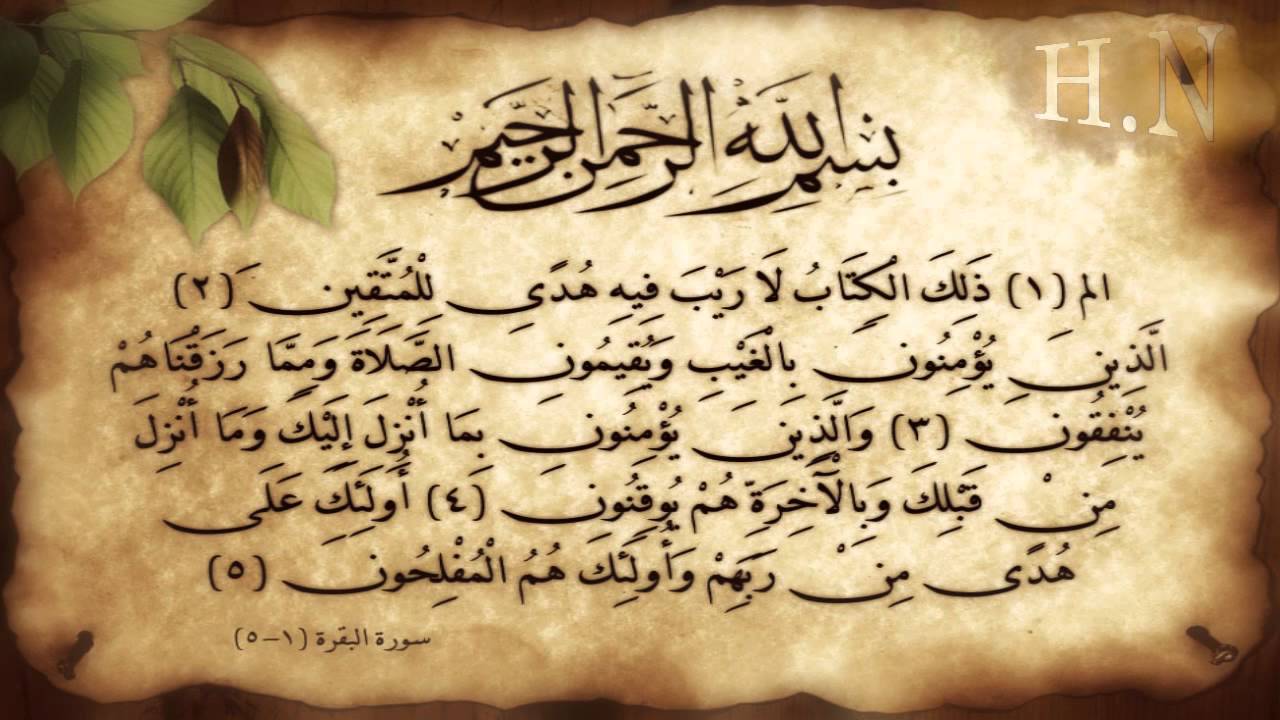 H.N
بِسْمِ اللَّهِ الرَّحْمَنِ الرَّحِيمِ
الم (١) ذَلِكَ الْكِتَابُ لَا رَيْبَ فِيهِ هُدًى لِلْمُتَّقِينَ (٢)
الَّذِينَ يُؤْمِنُونَ بِالْغَيْبِ وَيُقِيمُونَ الصَّلَاةَ وَمِمَّا رَزَقْنَاهُمْ
يُنْفِقُونَ (٣) وَالَّذِينَ يُؤْمِنُونَ بِمَا أُنْزِلَ إِلَيْكَ وَمَا أُنْزِلَ
مِنْ قَبْلِكَ وَبِالْآَخِرَةِ هُمْ يُوقِنُونَ (٤) أُولَئِكَ عَلَى
هُدًى مِنْ رَبِّهِمْ وَأُولَئِكَ هُمُ الْمُفْلِحُونَ (٥)
سورة البقرة (١-٥)